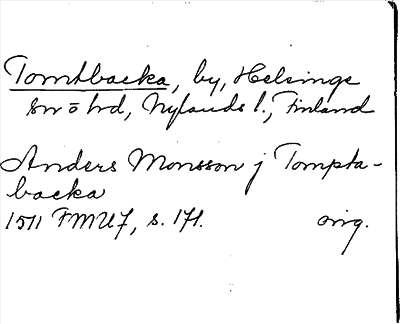 Tomtbacka, by, Helsinge
sn o hd, Nylands l., Finland
Anders Monsson j Tompta-
backa
1511 FMU 7, s. 171. orig.